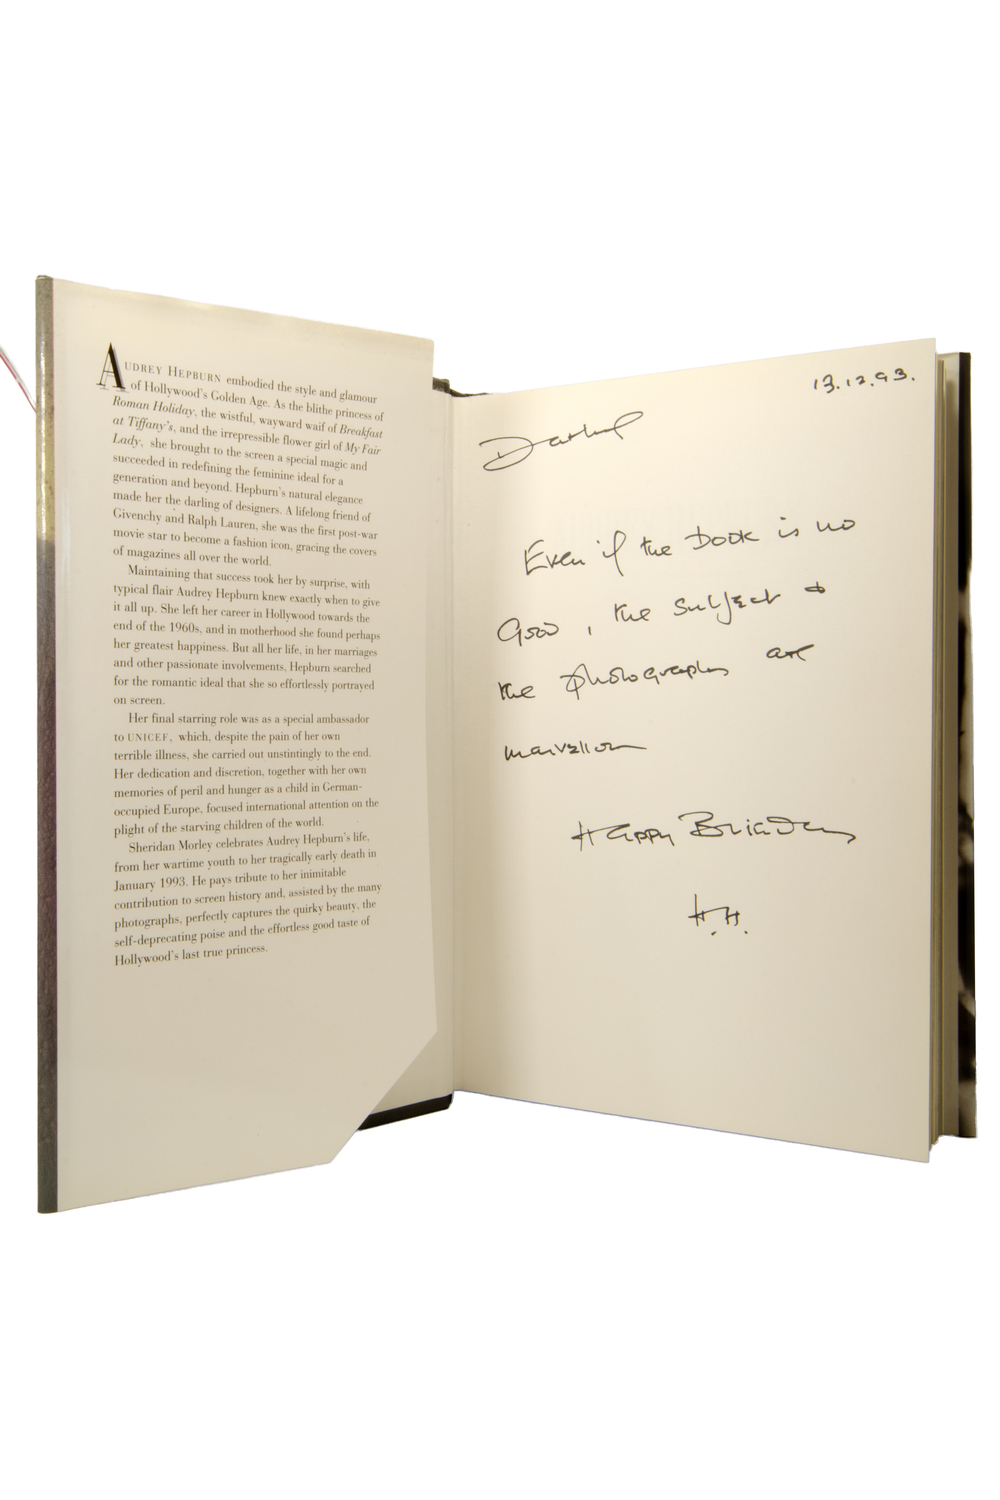 AUDREY HEPBURN embodied the style and glamour
of Hollywood's Golden Age. As the blithe princess of
Roman Holiday, the wistful, wayward waif of Breakfast
at Tiffany's, and the irrepressible flower girl of My Fair
Lady, she brought to the screen a special magic and
succeeded in redefining the feminine ideal for a
generation and beyond. Hepburn's natural elegance
made her the darling of designers. A lifelong friend of
Givenchy and Ralph Lauren, she was the first post-war
movie star to become a fashion icon, gracing the covers
of magazines all over the world.
Maintaining that success took her by surprise, with
typical flair Audrey Hepburn knew exactly when to give
it all up. She left her career in Hollywood towards the
end of the 1960s, and in motherhood she found perhaps
her greatest happiness. But all her life, in her marriages
and other passionate involvements, Hepburn searched
for the romantic ideal that she so effortlessly portrayed
on screen.
Her final starring role was as a special ambassador
to UNICEF, which, despite the pain of her own
terrible illness, she carried out unstintingly to the end.
Her dedication and discretion, together with her own
memories of peril and hunger as a child in German-
occupied Europe, focused international attention on the
plight of the starving children of the world.
Sheridan Morley celebrates Audrey Hepburn's life,
from her wartime youth to her tragically early death in
January 1993. He pays tribute to her inimitable
contribution to screen history and, assisted by the many
photographs, perfectly captures the quirky beauty, the
self-deprecating poise and the effortless good taste of
Hollywood's last true princess.
13.12.93.
Darling
Even if the Book is no
Good, the subject &
the photographs are
marvellous
Happy Birthday
H.H.